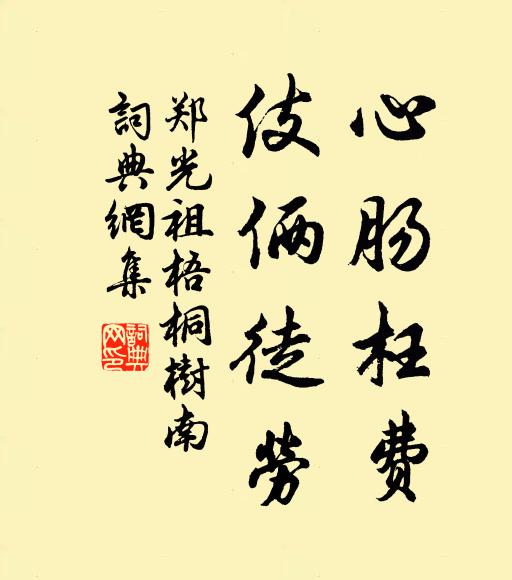 心肠枉费
伎俩徒劳
郑光祖梧桐樹南
詞典網集
詞典网印